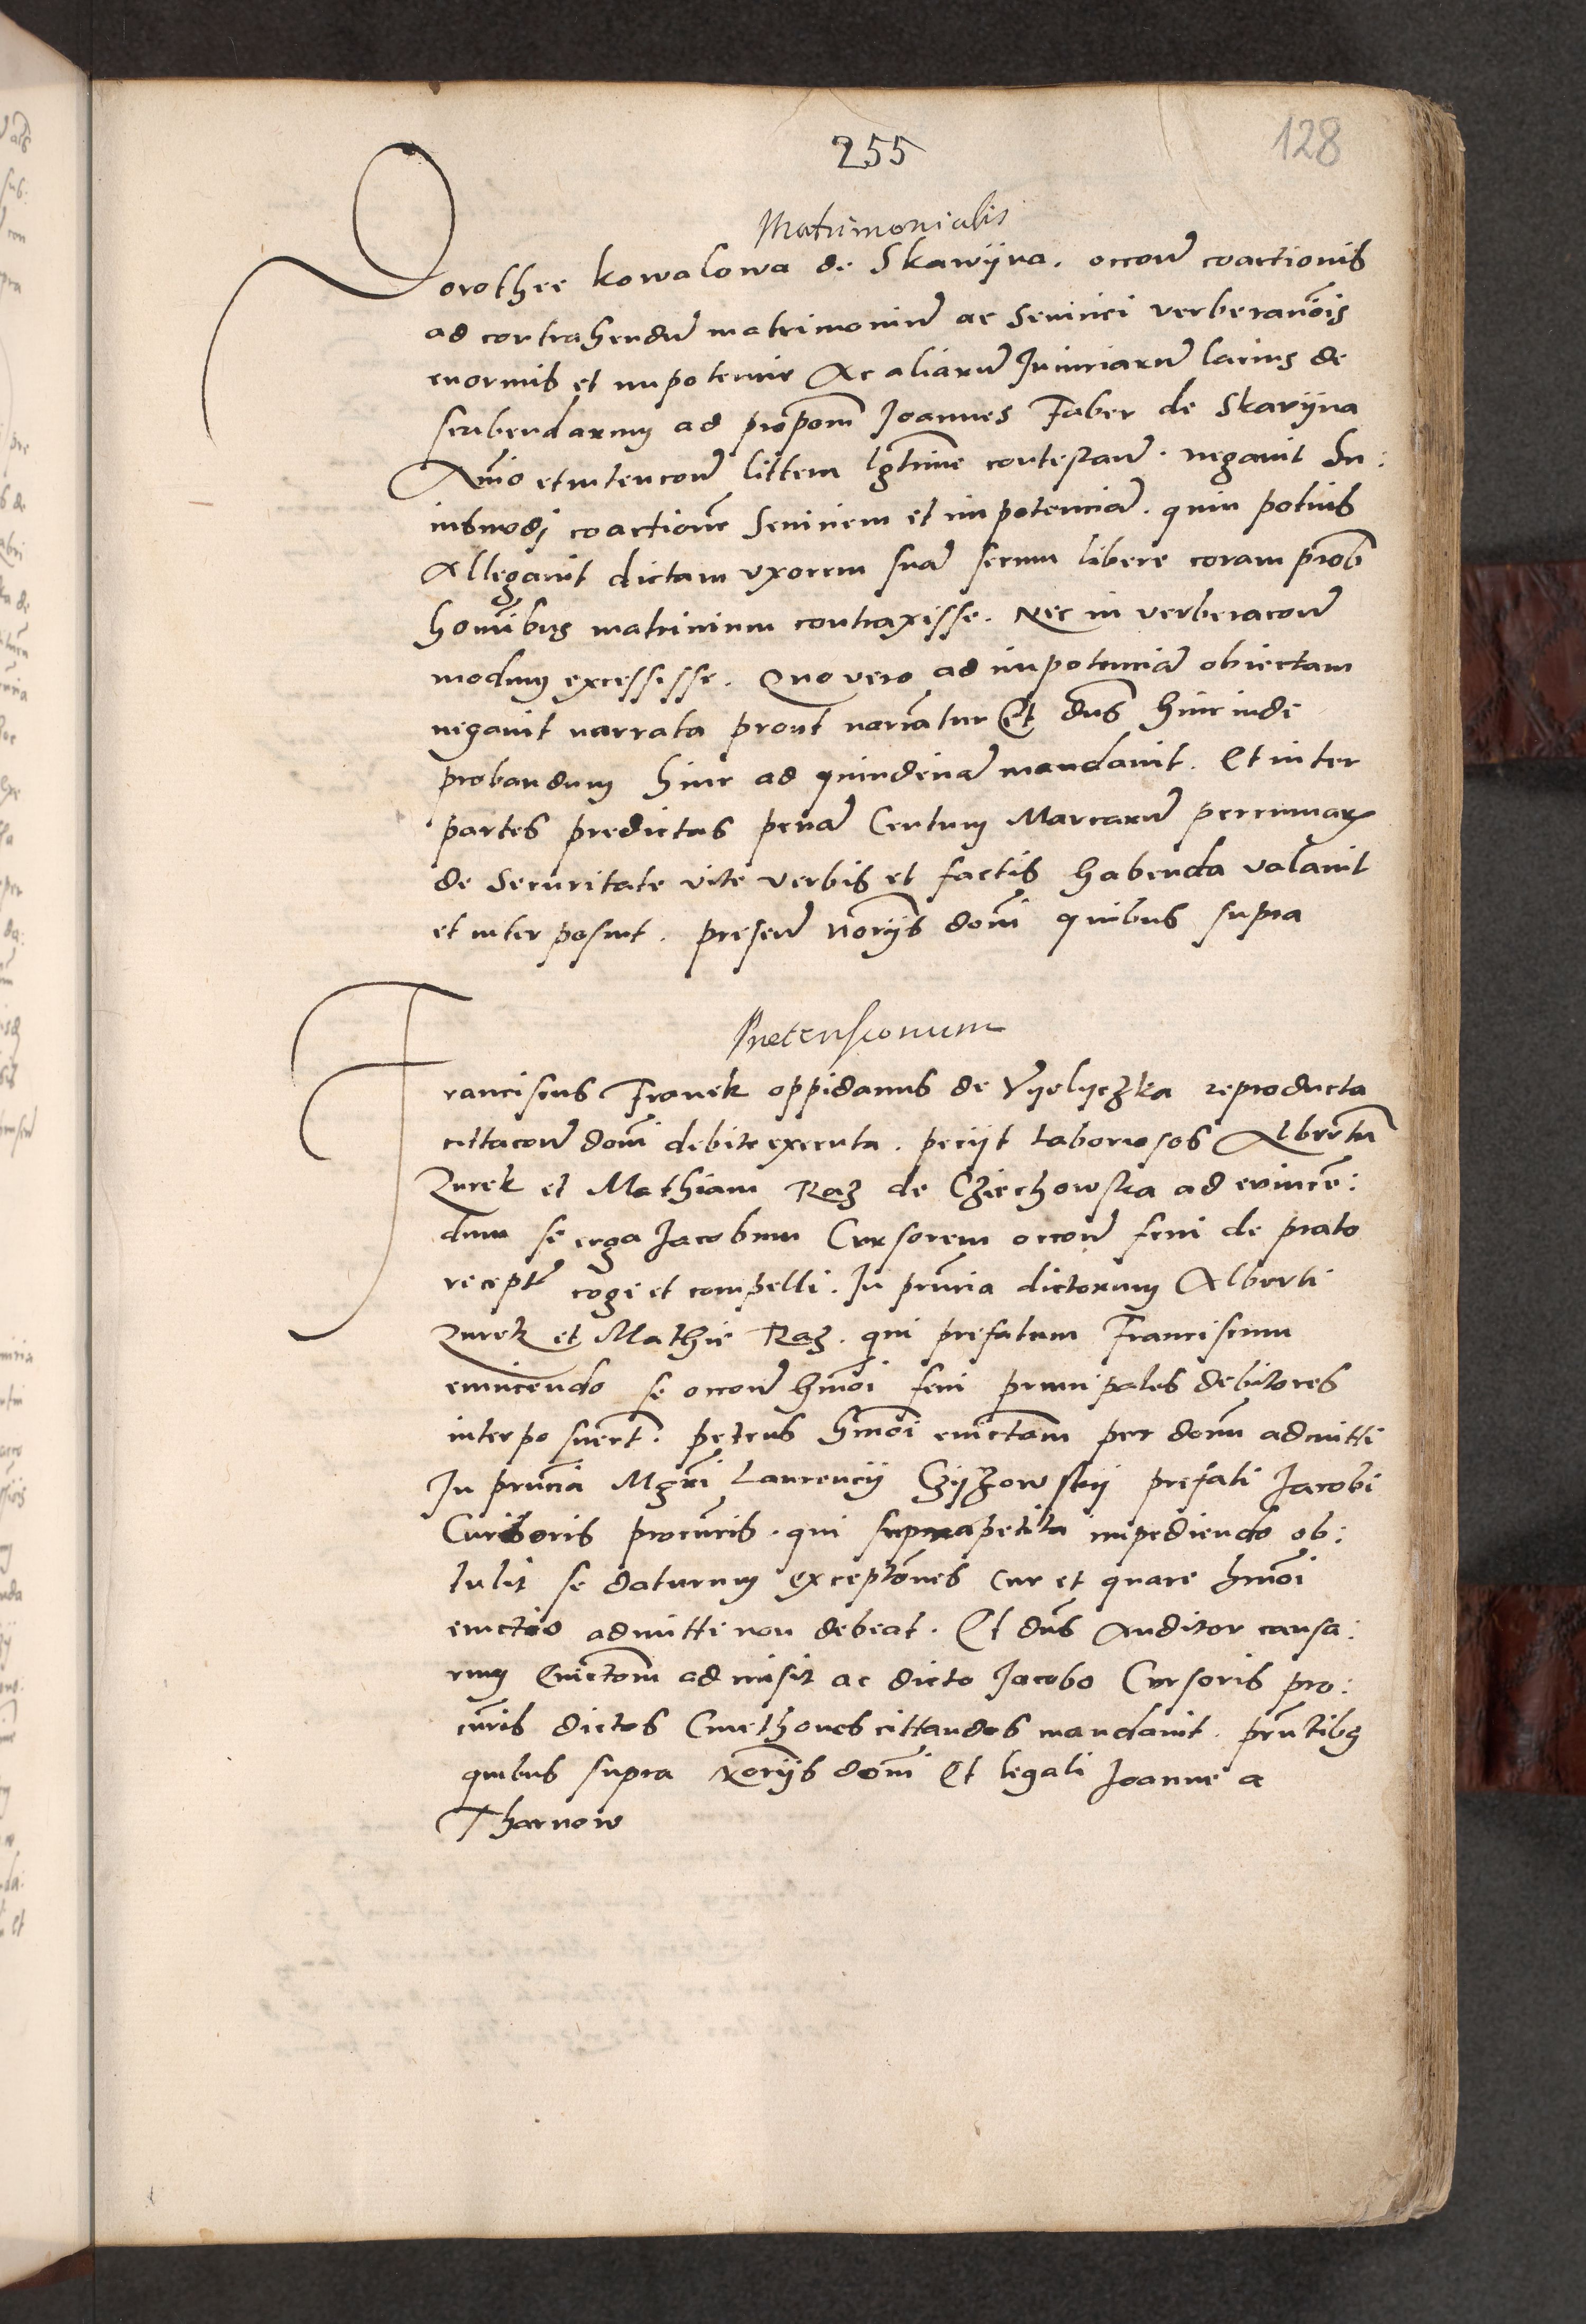 255
128
Matrimonialis
Dorothee kowalowa de Skawijna. occone coactionis
ad contrahendu matrimoniu ac Seviciei verberationis
enormis et impotencie Ac aliaru Iniuriaru lacius de
scribendarum ad propom Joannes Faber de Skavijna
Animo et intencone littem lgtime contestan. negavit Hu:
iusmodj coactione Seviciem et impotencia. quin potius
Allegavit dictam vxorem sua secum libere coram prob
hominibus matrinium contraxisse. Nec in verberacone
modum excessisse. Quo vero ad impotencia obiectam
negavit narrata prout narratur Et dns hinc inde
probandum hinc ad quindena mandavit. Et inter
partes predictas pena Centum Marcaru pecuniar
de Securitate vite verbis et factis habenda valavit
et interposuit. presen noriis domi quibus supra
Pretensionum
Franciscus Franek oppidanus de Vijelijczka reproducta
cittacone domi debite executa. peciit laboriosos Albertu
Zurek et Mathiam Raz de Cziechowska ad evincen:
dum se erga Jacobum Cursorem occone feni de prato
recept cogi et compelli. In prncia dictorum Alberti
Zurek et Mathie Raz. qui prefatum Franciscum
evincendo se occone hmoi feni principales debitores
interposuert. petens hmoi evictam per domi admitti
In prncia Mgri Laurencij Czijzowskij prefati Jacobi
Cursoris procuris. qui suprapetita impediendo ob:
tulit se daturum exceptones cur et quare hmoi
evictio admitti non debeat. Et dns Auditor causa:
rum Evictom admisit ac dicto Jacobo Cursoris pro:
curis dictos Cmethones cittandos mandavit. prntibq
quibus supra Noriis domi Et legali Joanne a
Tharnow